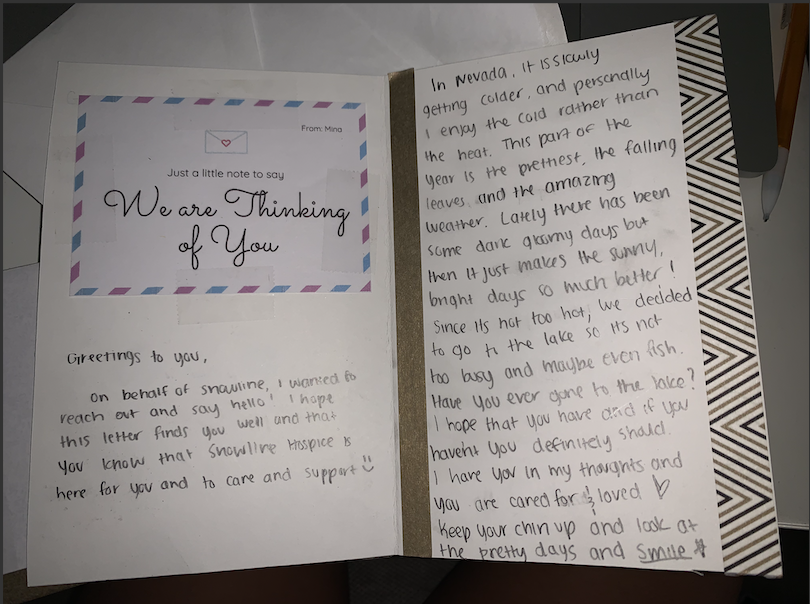 From: Mina
Just a little note to say
We are Thinking
of You
Greetings to you,
On behalf of snowline, I wanted to
reach out and say hello! I hope
this letter finds you well and that
you know that Snowline Hospice is
here for you and to care and support :)
In Nevada, it is slowly
getting colder, and personally
I enjoy the cold rather than
the heat. This part of the
year is the prettiest, the falling
leaves and the amazing
weather. Lately there has been
some dark gloomy days but
then it just makes the sunny,
bright days so much better!
Since its not too hot, we decided
to go to the lake so its not
too busy and maybe even fish.
Have you ever gone to the lake?
I hope that you have and if you
havent you definitely should.
I have you in my thoughts and
you are cared for & loved ♡
Keep your chin up and look at
the pretty days and smile